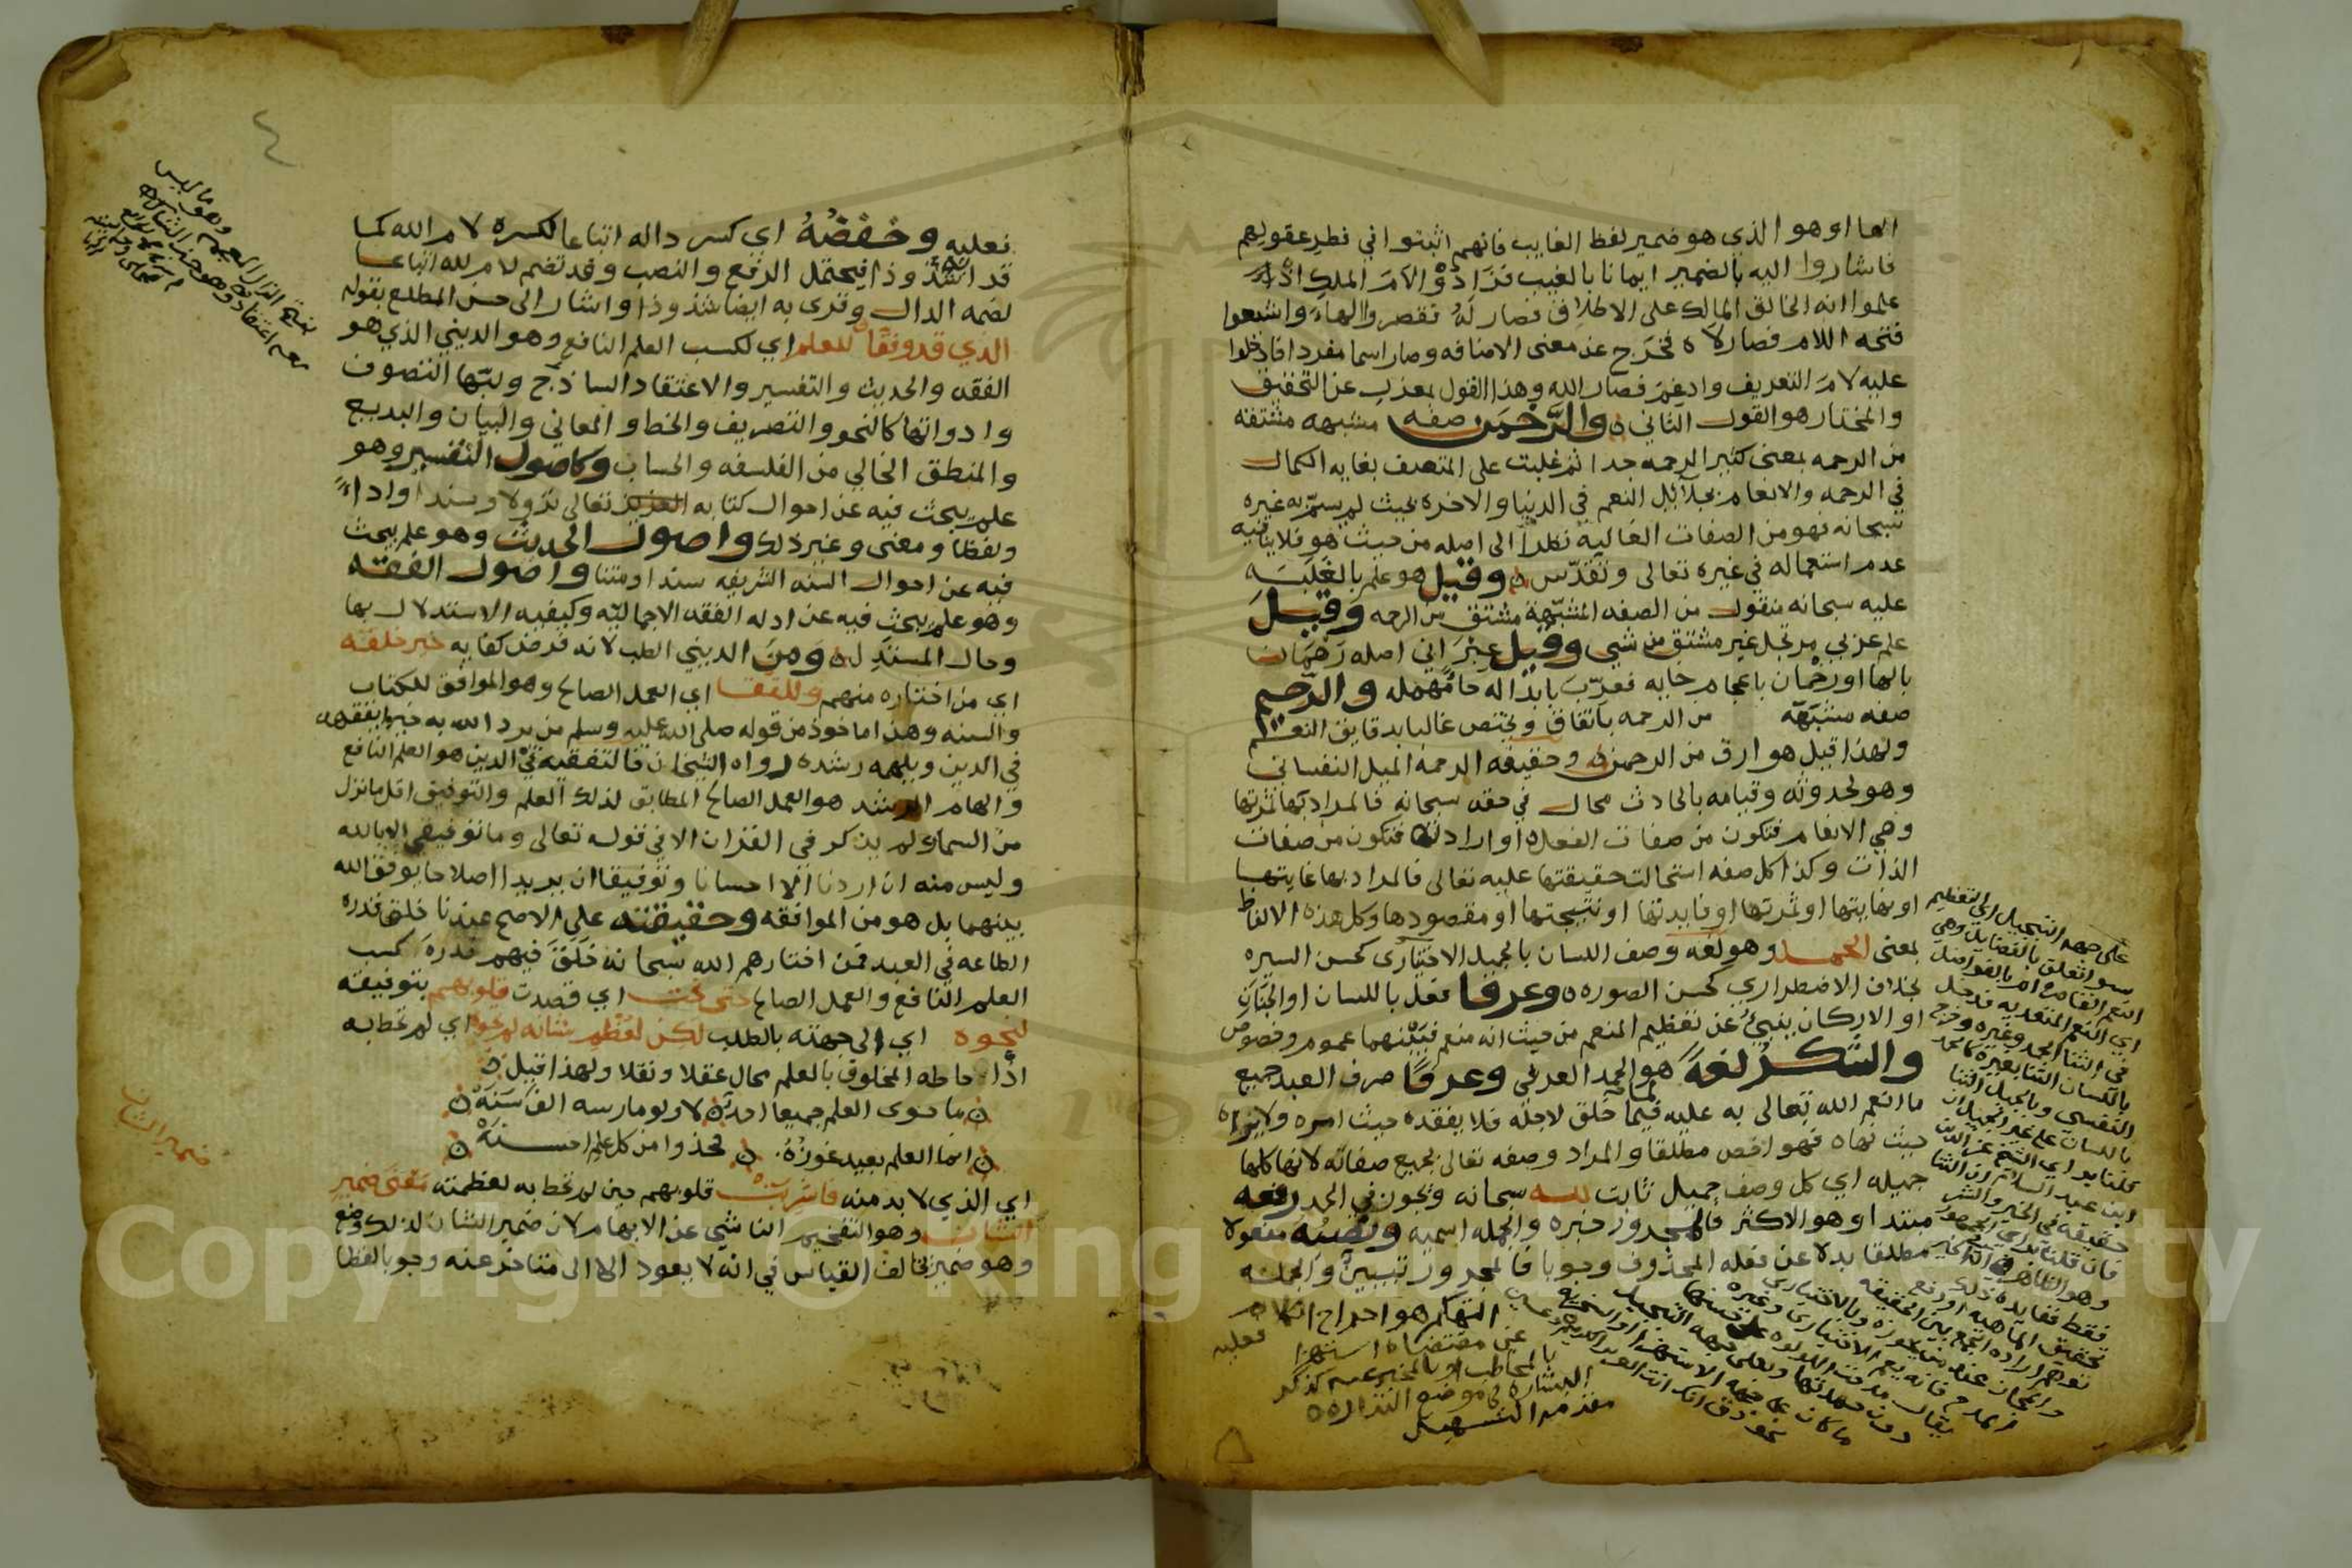 الها او هو الذي هو ضمير لفظ الغايب فانهم اثبتوا في فطر عقولهم
فاشاروا اليه بالضمير ايمانا بالغيب فزادوا لام الملك اذ
علموا انه الخالق المالك على الاطلاق فصار له فقصروا الهاء واشبعوا
فتحه اللام فصار لاه فخرج عن معنى الاضافه وصار اسما مفردا فادخلوا
عليه لام التعريف وادغم فصار الله وهذا القول بمعزب عن التحقيق
والمختار هو القول الثاني والرحمن صفه مشبهه مشتقه
من الرحمه بمعنى كثير الرحمه جدا ثم غلبت على المتصف بغايه الكمال
في الرحمه والانعام بجلائل النعم في الدنيا والاخره بحيث لم يسم به غيره
سبحانه فهو من الصفات الغالبة نظرا الى اصله من حيث هو فلا ينافيه
عدم استعماله في غيره تعالى وتقدس وقيل هو علم بالغلبه
عليه سبحانه منقول من الصفه المشبهة مشتق من الرحمه وقيل
علم عربي مرتجل غير مشتق من شيء وقيل عبراني اصله رخمان
بالها او رخمان باعجام خايه فعرب بابداله حا مهمله والرحيم
صفه مشبهه من الرحمه باتفاق ويختص غالبا بدقايق النعم
ولهذا قيل هو ارق من الرحمن وحقيقه الرحمه الميل النفساني
وهو لحدوثه وقيامه بالحادث محال في حقه سبحانه فالمراد بها ثمرتها
وهي الانعام فتكون من صفات الفعل او ارادته فتكون من صفات
الذات وكذا كل صفه استحالت حقيقتها عليه تعالى فالمراد بها غايتها
او نهايتها او ثمرتها او فايدتها او نتيجتها او مقصودها وكل هذه الالفاظ
بمعنى الحمد وهو لغه وصف اللسان بالجميل الاختياري كحسن السيره
بخلاف الاضطراري كحسن الصوره وعرفا فعل باللسان او الجنان
او الاركان ينبئ عن تعظيم المنعم من حيث انه منعم فبينهما عموم وخصوص
والشكر لغة هو الحمد العرفي وعرفا صرف العبد جميع
ما انعم الله تعالى به عليه فيما خلق لاجله فلا يفقده حيث امره ولا يراه
حيث نهاه فهو اخص مطلقا والمراد وصفه تعالى بجميع صفاته لانها كلها
جميله اي كل وصف جميل ثابت لله سبحانه ويجوز في الحمد رفعه
مبتدا وهو الاكثر فالمجرور خبره والجمله اسميه ونصبه مفعولا
مطلقا بدلا عن فعله المحذوف وجوبا فالمجرور تبيين والجمله
فعليه
على جهه التبجيل اي التعظيم
سوا تعلق بالفضايل وهي
النعم القاصره ام بالفواضل
اي النعم المتعديه فدخل
في الثنا الحمد وغيره وخرج
باللسان الثنا بغيره كالحمد
النفسي وبالجميل الثنا
باللسان على غير الجميل ان
قلنا براي الشيخ عز الدين
ابن عبد السلام ان الثنا
حقيقه في الخير والشر
فان قلنا براي الجمهور
وهو الظاهر انه في الخير
فقط ففايده ذلك
تحقيق الماهيه او رفع
توهم اراده الجمع بين الحقيقه
والمجاز عند من يجوزه وبالاختياري
المدح فانه يعم الاختياري وغيره
يقال مدحت اللولوه على حسنها
دون حمدتها وعلى جهه التبجيل
ما كان على جهه الاستهزا والسخريه
نحو ذق انك انت العزيز الكريم
التهكم هو اخراج الكلام
عن مقتضاه استهزا
بالمخاطب او بالمخبر عنه كذكر
البشاره في موضع النذاره
فعليه وخفضه اي كسر داله اتباعا لكسره لام الله كما
قد اشذ وذا يحتمل الرفع والنصب وقد تضم لام لله اتباعا
لضمه الدال وقرئ به ايضا شذوذا واشار الى حسن المطلع بقوله
الذي قد وفقا للعلم اي لكسب العلم النافع وهو الديني الذي هو
الفقه والحديث والتفسير والاعتقاد الساذج ولبها التصوف
وادواتها كالنحو والتصريف والخط والمعاني والبيان والبديع
والمنطق الخالي من الفلسفه والحساب وكاصول التفسير وهو
علم يبحث فيه عن احوال كتابه العزيز تعالى نزولا وسندا واداء
ولفظا ومعنى وغير ذلك واصول الحديث وهو علم يبحث
فيه عن احوال السنه الشريفه سندا ومتنا واصول الفقه
وهو علم يبحث فيه عن ادله الفقه الاجماليه وكيفيه الاستدلال بها
وحال المستدل ومن الديني الطب لانه فرض كفايه خير خلقه
اي من اختاره منهم وللتقى اي العمل الصالح وهو الموافق للكتاب
والسنه وهذا ماخوذ من قوله صلى الله عليه وسلم من يرد الله به خيرا يفقهه
في الدين ويلهمه رشده رواه الشيخان فالتفقيه في الدين هو العلم النافع
والهام الرشد هو العمل الصالح المطابق لذلك العلم والتوفيق اقل ما نزل
من السماء ولم يذكر في القران الا في قوله تعالى وما توفيقي الا بالله
وليس منه ان اردنا الا احسانا وتوفيقا ان يريدا اصلاحا يوفق الله
بينهما بل هو من الموافقه وحقيقته على الاصح عندنا خلق قدره
الطاعه في العبد فمن اختارهم الله سبحانه خلق فيهم قدرة كسب
العلم النافع والعمل الصالح حتى نحت اي قصدت قلوبهم بتوفيقه
لنحوه اي الى جهته بالطلب لكن لعظم شانه لم تحوه اي لم تحط به
اذ احاطه المخلوق بالعلم محال عقلا ونقلا ولهذا قيل
ما حوى العلم جميعا احد لا ولو مارسه الف سنه
انما العلم بعيد غوره فخذوا من كل علم احسنه
اي الذي لا بد منه فاشربت قلوبهم حين لم تحط به لعظمته معنى ضمير
الشان وهو التفخيم الناشي عن الابهام لان ضمير الشان لذلك وضع
وهو ضمير يخالف القياس في انه لا يعود الا الى متاخر عنه وجوبا لفظا
ضمير الشان
Copyright © King Saud University